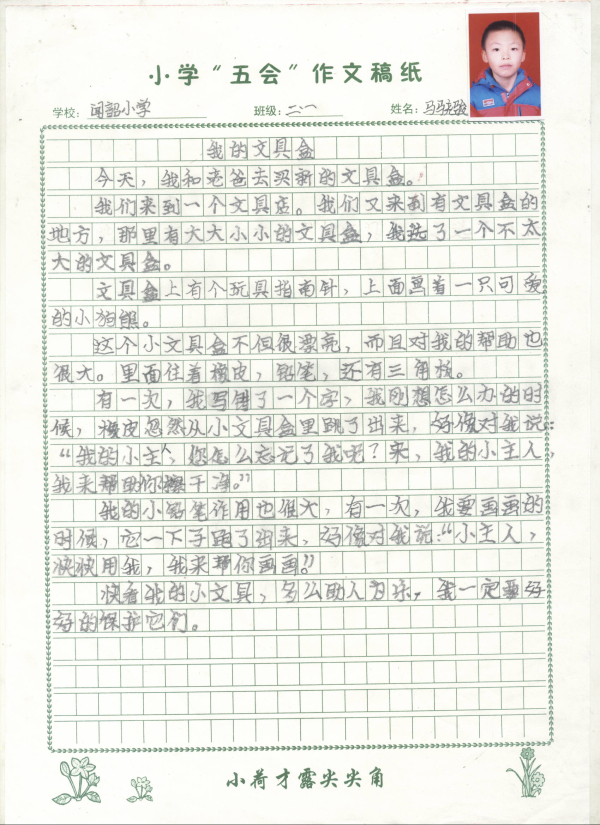 小学“五会”作文稿纸
学校：闻韶小学 班级：二·一 姓名：马骁骏
我的文具盒
今天，我和老爸去买新的文具盒。
我们来到一个文具店。我们又来到有文具盒的
地方，那里有大大小小的文具盒，我选了一个不太
大的文具盒。
文具盒上有个玩具指南针，上面画着一只可爱
的小狗熊。
这个小文具盒不但很漂亮，而且对我的帮助也
很大。里面住着橡皮，铅笔，还有三角板。
有一次，我写错了一个字，我刚想怎么办的时
候，橡皮忽然从小文具盒里跳了出来，好像对我说：
“我的小主人，您怎么忘记了我呢？来，我的小主人，
我来帮助你擦干净。”
我的小铅笔作用也很大，有一次，我要画画的
时候，它一下子蹦了出来，好像对我说：“小主人，
快快用我，我来帮你画画。”
快看我的小文具，多么助人为乐，我一定要好
好的保护它们。
小荷才露尖尖角